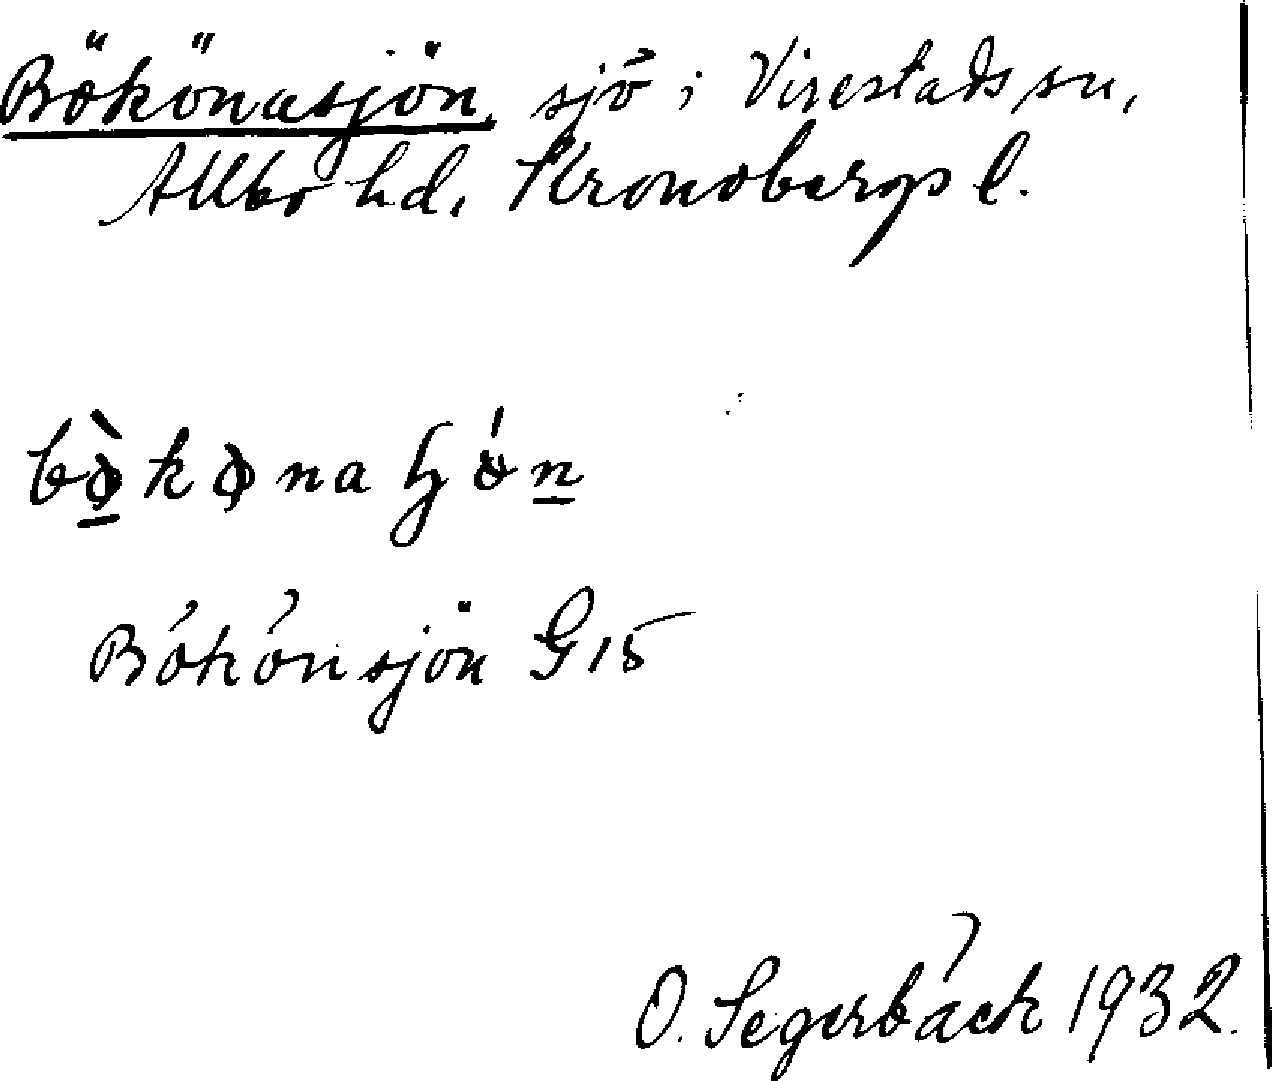 Bökönasjön, sjö i Virestads sn,
Allbo hd, Kronobergs l.
Bökönsjön G15
O. Segerbäck 1932.